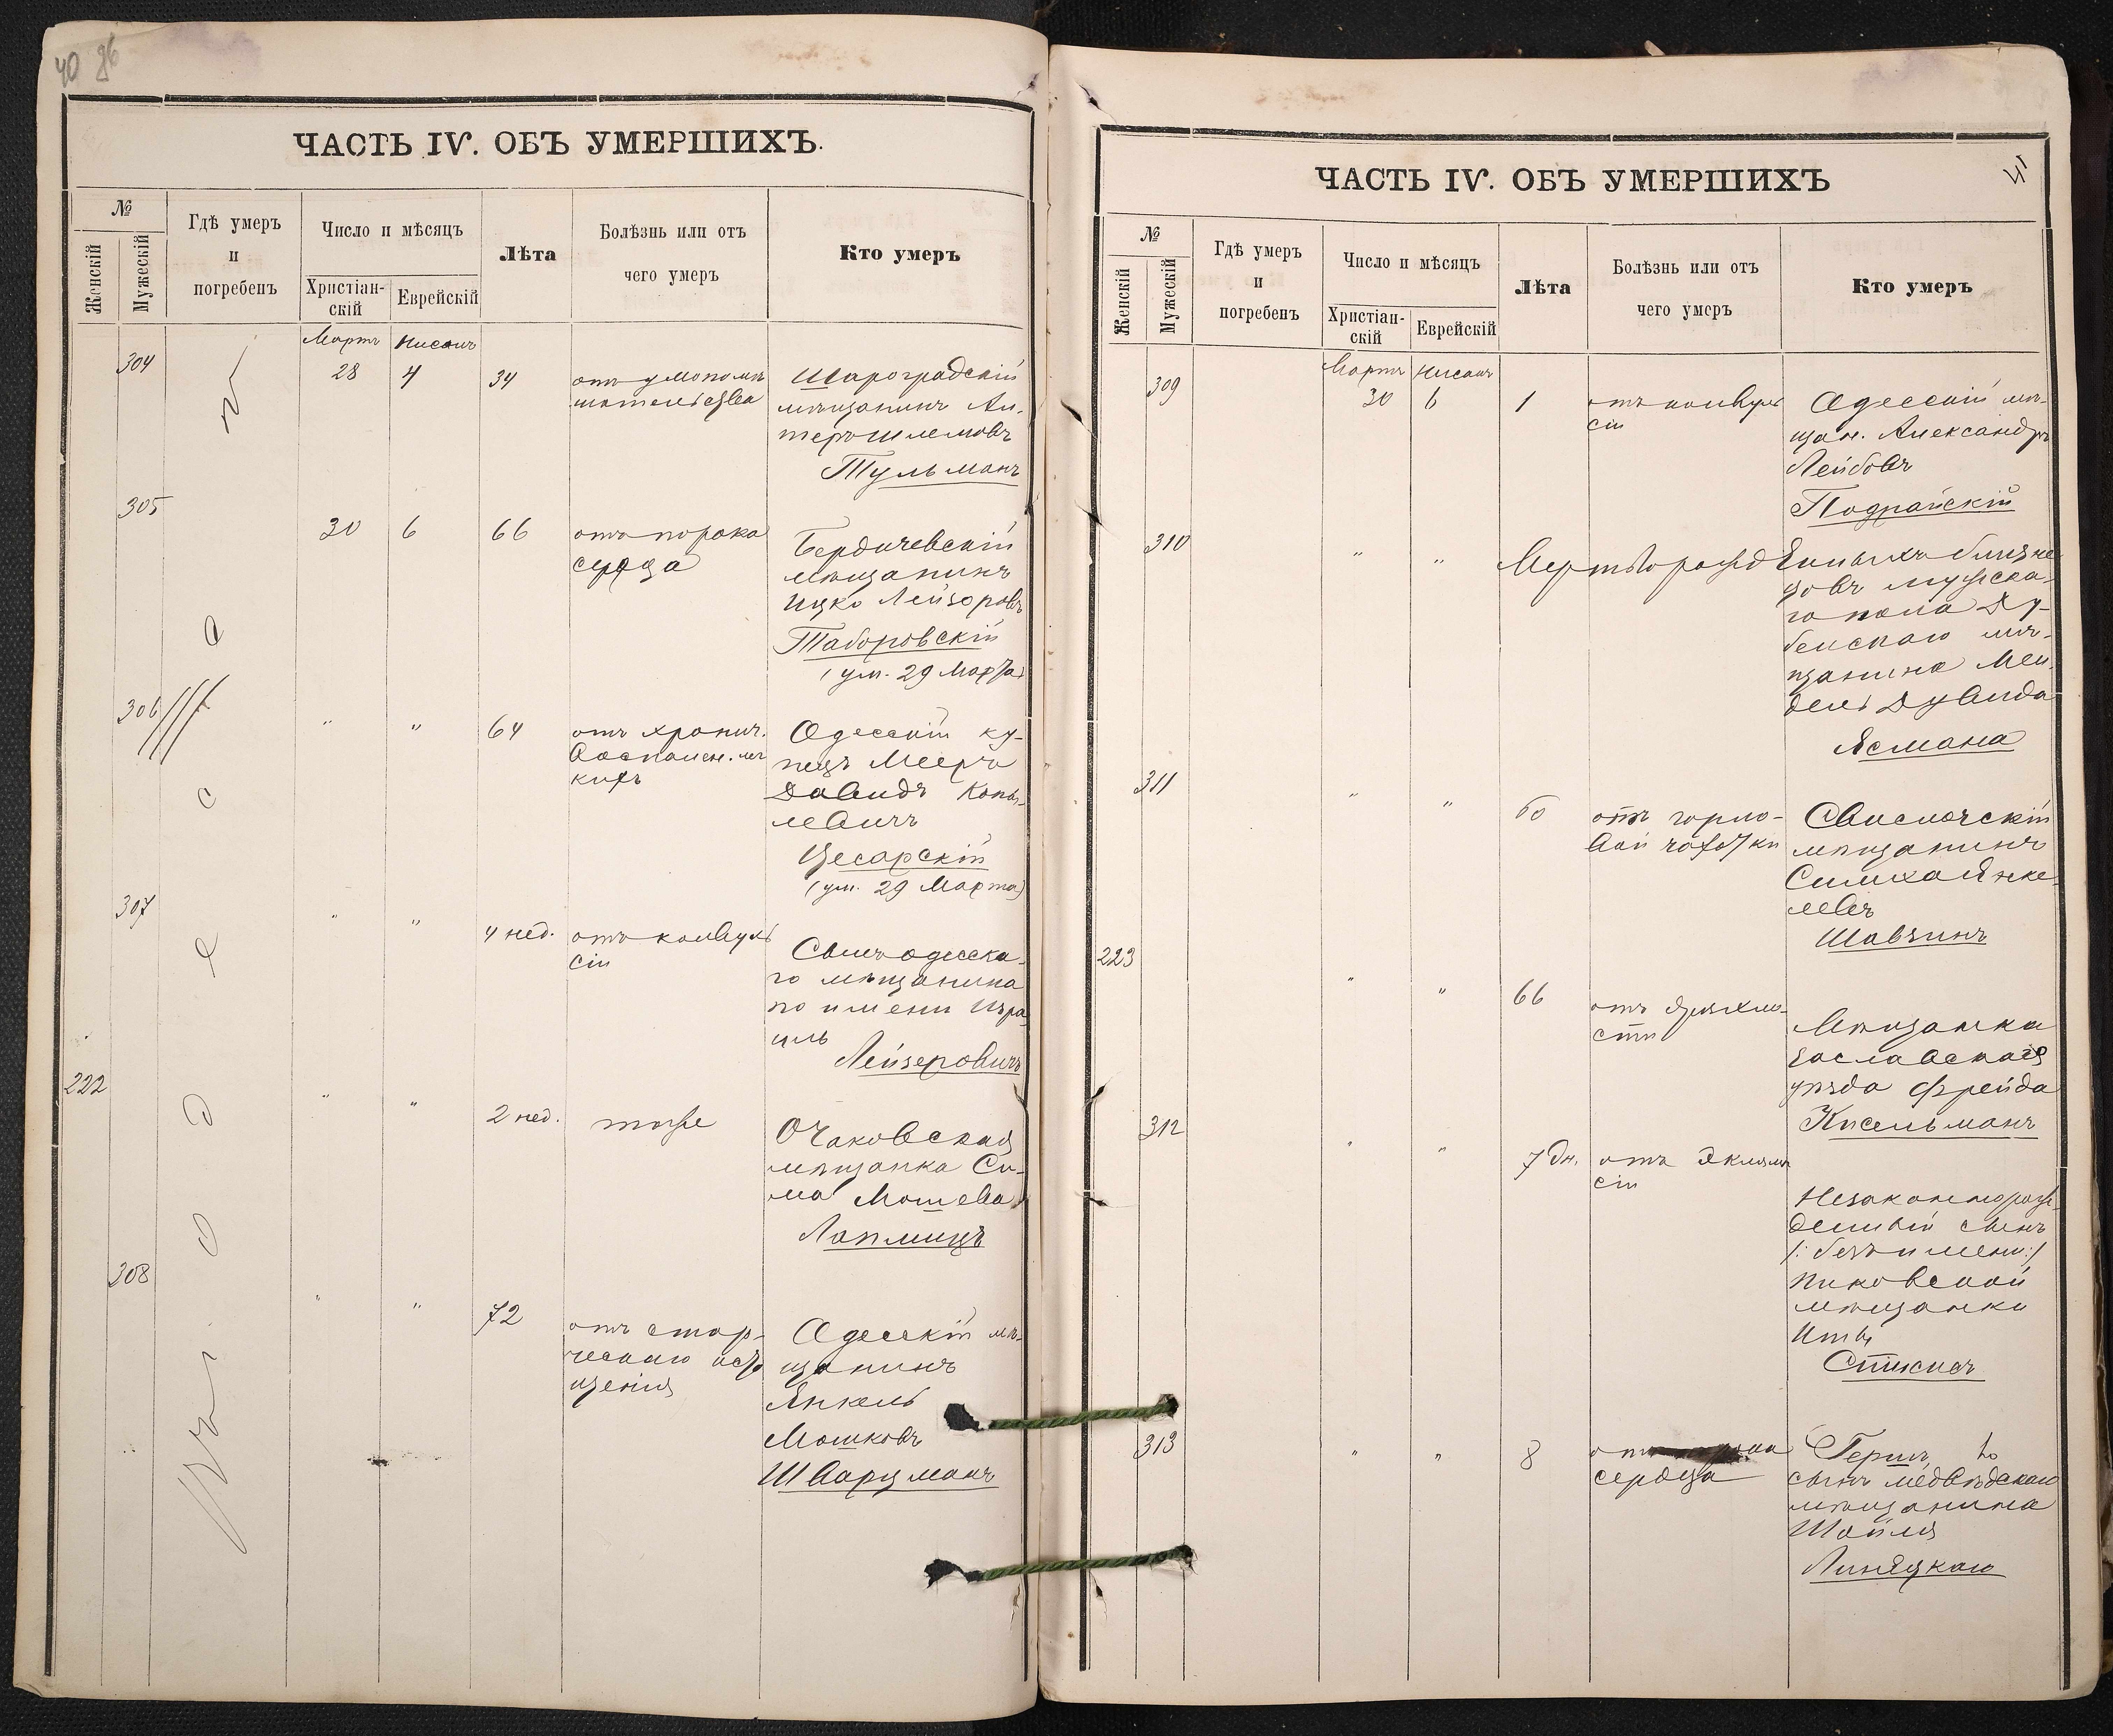 40 об
ЧАСТЬ IV. ОБЪ УМЕРШИХЪ.
№
Женскій
Мужескій
Гдѣ умеръ
и
погребенъ
Число и мѣсяцъ
Христіан-
скій
Еврейскій
Лѣта
Болѣзнь или отъ
чего умеръ
Кто умеръ
Мартъ Нисанъ
304
28 4 34
отъ умопомѣ
шательства
Шароградскій
мѣщанинъ Ан-
Шлемовъ
Тульманъ
305
30 6 66
отъ порока
сердца
Бердичевскій
мѣщанинъ
Ицко Лейзоровъ
Таборовскій
(ум. 29 Марта)
306
" " 64
отъ хронич.
воспален. лег
кихъ
Одесскій ку-
пецъ Мееръ
Давидъ Копы-
левичъ
Цесарскій
(ум. 29 Марта)
307
" " 4 нед.
отъ конвуль
сіи
Сынъ одесска-
го мѣщанина
по имени Изра
иль
Лейзеровичъ
222
" " 2 нед.
тоже
Очаковская
мѣщанка Си-
ма Мошева
Лапмицъ
308
" " 72
отъ стар-
ческаго исто
щенія
Одесскій мѣ-
щанинъ
Янкель
Мошковъ
Шварцманъ
Одесса
41
ЧАСТЬ IV. ОБЪ УМЕРШИХЪ
№
Женскій
Мужескій
Гдѣ умеръ
и
погребенъ
Число и мѣсяцъ
Христіан-
скій
Еврейскій
Лѣта
Болѣзнь или отъ
чего умеръ
Кто умеръ
Мартъ Нисанъ
309
30 6 1
отъ конвуль
сіи
Одесскій мѣ-
щан. Александръ
Лейбовъ
Подрайскій
310
" " Мертворожденныхъ близне
цовъ мужска-
го пола Ду-
бенскаго мѣ-
щанина Мен-
дель Дувида
Ясмана
311
" " 60
отъ горло-
вой чахотки
Свислочскій
мѣщанинъ
Симха Янке-
левъ
Шавзинъ
223
" " 66
отъ дряхло-
сти
Мѣщанка
Заславскаго
уѣзда Фрейда
Кисельманъ
312
" " 7 дн.
отъ эклам
сіи
Незаконнорож-
денный сынъ
/: безъ имени :/
Пиковской
мѣщанки
Иты
Стиксъ
313
" " 8
сердца
Гершъ,
сынъ Медвѣдскаго
мѣщанина
Шойля
Линецкаго